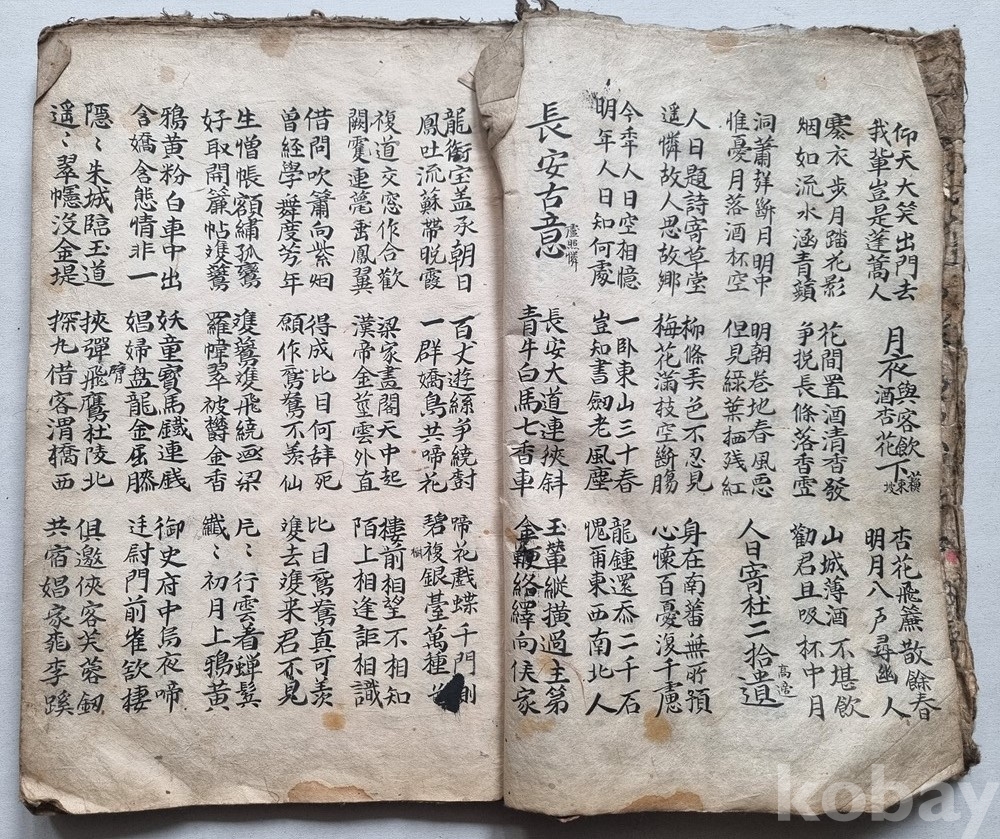 仰天大笑出門去
我輩豈是蓬蒿人
月夜與客飲酒杏花下 蘇東坡
杏花飛簾散餘春
明月入戶尋幽人
褰衣步月踏花影
烟如流水涵青蘋
花間置酒清香發
爭挽長條落香雪
山城薄酒不堪飲
勸君且吸杯中月
洞簫聲斷月明中
惟憂月落酒杯空
明朝巷地春風惡
但見綠葉栖残紅
人日寄杜二拾遺 高適
人日題詩寄草堂
遥憐故人思故鄉
柳條弄色不忍見
梅花滿枝空斷腸
身在南蕃無所預
心懷百憂復千慮
今年人日空相憶
明年人日知何處
一卧東山三十春
豈知書劍老風塵
龍鍾還忝二千石
愧爾東西南北人
長安古意 盧照憐
長安大道連挾斜
青牛白馬七香車
玉輦縱橫過主第
金鞭絡繹向侯家
龍銜宝盖承朝日
鳳吐流蘇帶晚霞
百丈遊絲爭繞對
一群嬌鳥共啼花
啼花戱蝶千門側
碧樹銀臺萬種
複道交窓作合歡
闕连甍垂鳳翼
梁家畫閣天中起
漢帝金莖雲外直
樓前相望不相知
陌上相逢詎相識
借問吹簫向紫烟
曾経學舞度芳年
得成比目何辞死
願作鴛鴦不羨仙
比目鴛鴦真可羨
雙去雙来君不見
生憎帳額繡孤鸞
好取開簾帖雙鸞
雙鸞雙飛繞画梁
羅幃翠被欝金香
片〻行雲者蟬鬂
纖〻初月上鴉黃
鴉黃粉白車中出
含嬌含態情非一
妖童寶馬鐵連戗
娼婦盤龍金屈膝
御史府中烏夜啼
廷尉門前雀欲棲
隱〻朱城臨玉道
遥〻翠幰沒金堤
挾彈飛鷹杜陵北
探丸借客渭橋西
俱邀俠客芙蓉釼
共宿娼家桃李蹊
kobay